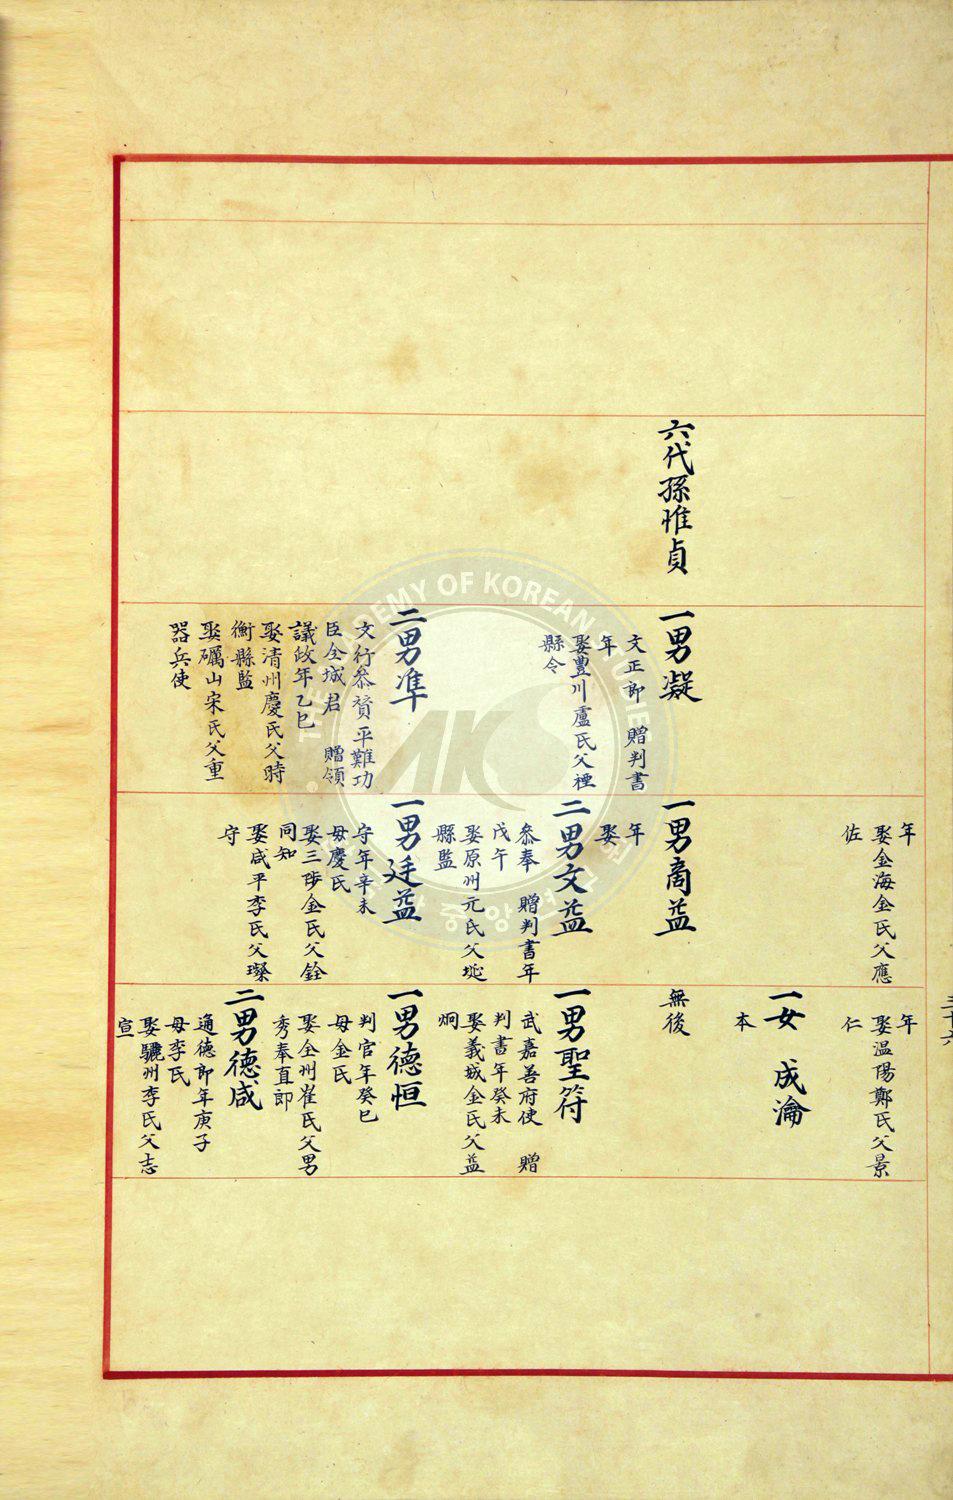 六代孫惟貞
一男凝
文正郎 贈判書
年
娶豊川盧氏父禋
縣令
二男準
文行叅贊平難功
臣全城君 贈領
議政年乙巳
娶清州慶氏父時
衡縣監
娶礪山宋氏父重
器兵使
年
娶金海金氏父應
佐
一男商益
年
娶
二男文益
叅奉 贈判書年
戊午
娶原州元氏父埏
縣監
一男廷益
守年辛未
毋慶氏
娶三陟金氏父銓
同知
娶咸平李氏父璨
守
三十六
年
娶温陽鄭氏父景
仁
一女 成瀹
本
無後
一男聖符
武嘉善府使 贈
判書年癸未
娶義城金氏父益
炯
一男德恒
判官年癸巳
毋金氏
娶全州崔氏父男
秀奉直郎
二男德咸
通德郎年庚子
毋李氏
娶驪州李氏父志
宣
THE ACADEMY OF KOREAN STUDIES
AKS